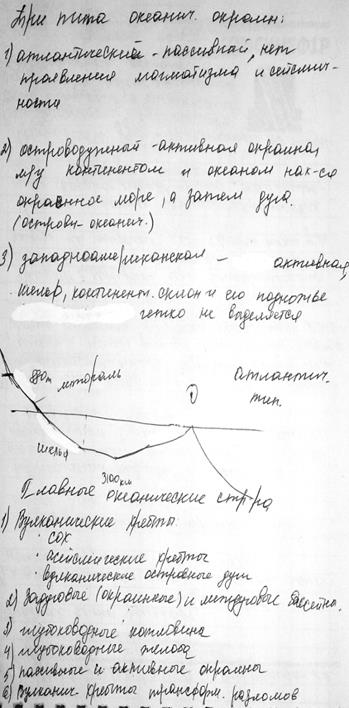 Три типа океанич. окраин:
1) атлантический - пассивный, нет
проявления магматизма и сейсмич-
ности
2) островодужный - активная окраина,
м/у континентом и океаном нах-ся
окраинное море, а затем дуга.
(острови - океанич.)
3) западноамериканская - активная,
шельф, континент. склон и его подножье
четко не выделяется
литораль
атлантич.
тип.
шельф
Главные океанические стр-ра
1) Вулканические хребты:
· СОХ
· асейсмические хребты
· вулканические островные дуги
2) Задуговые (окраинные) и междуговые бассейны.
3) глубоководные котловина
4) глубоководные желоба
5) пассивные и активные окраины
6) Вулканич. хребты трансформ. разломов